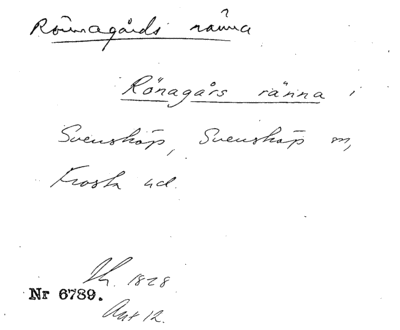 Rönnagårds ränna
Rönagårs ränna i
Svensköp, Svensköp sn,
Frosta hd.
1828
Nr 6789.
Akt 12.